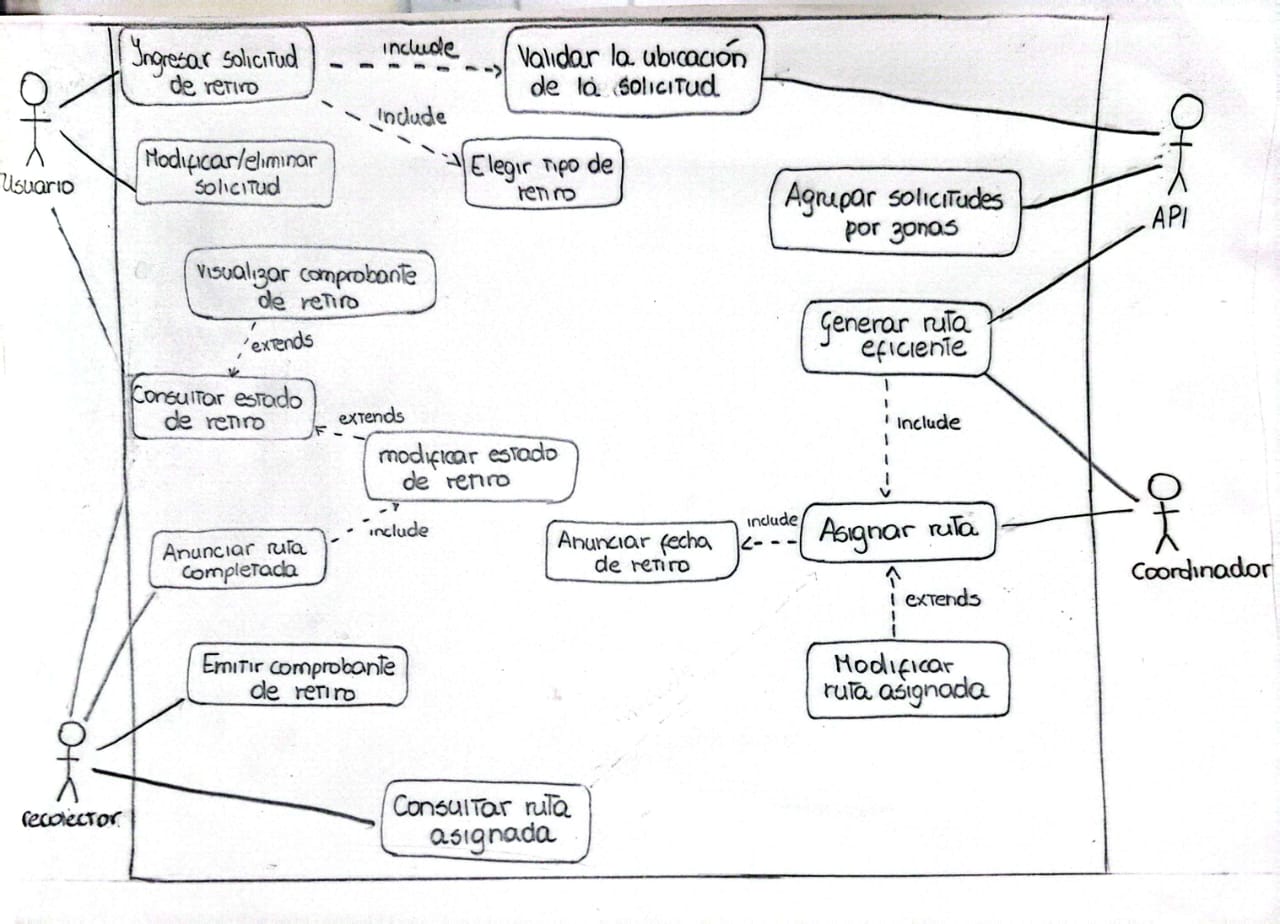 Ingresar solicitud
de retiro
include
Validar la ubicación
de la solicitud
include
Usuario
Modificar/eliminar
solicitud
Elegir tipo de
retiro
Agrupar solicitudes
por zonas
API
Visualizar comprobante
de retiro
extends
Generar ruta
eficiente
Consultar estado
de retiro
extends
include
modificar estado
de retiro
Anunciar ruta
completada
include
Anunciar fecha
de retiro
include
Asignar ruta
Coordinador
extends
Emitir comprobante
de retiro
Modificar
ruta asignada
recolector
Consultar ruta
asignada